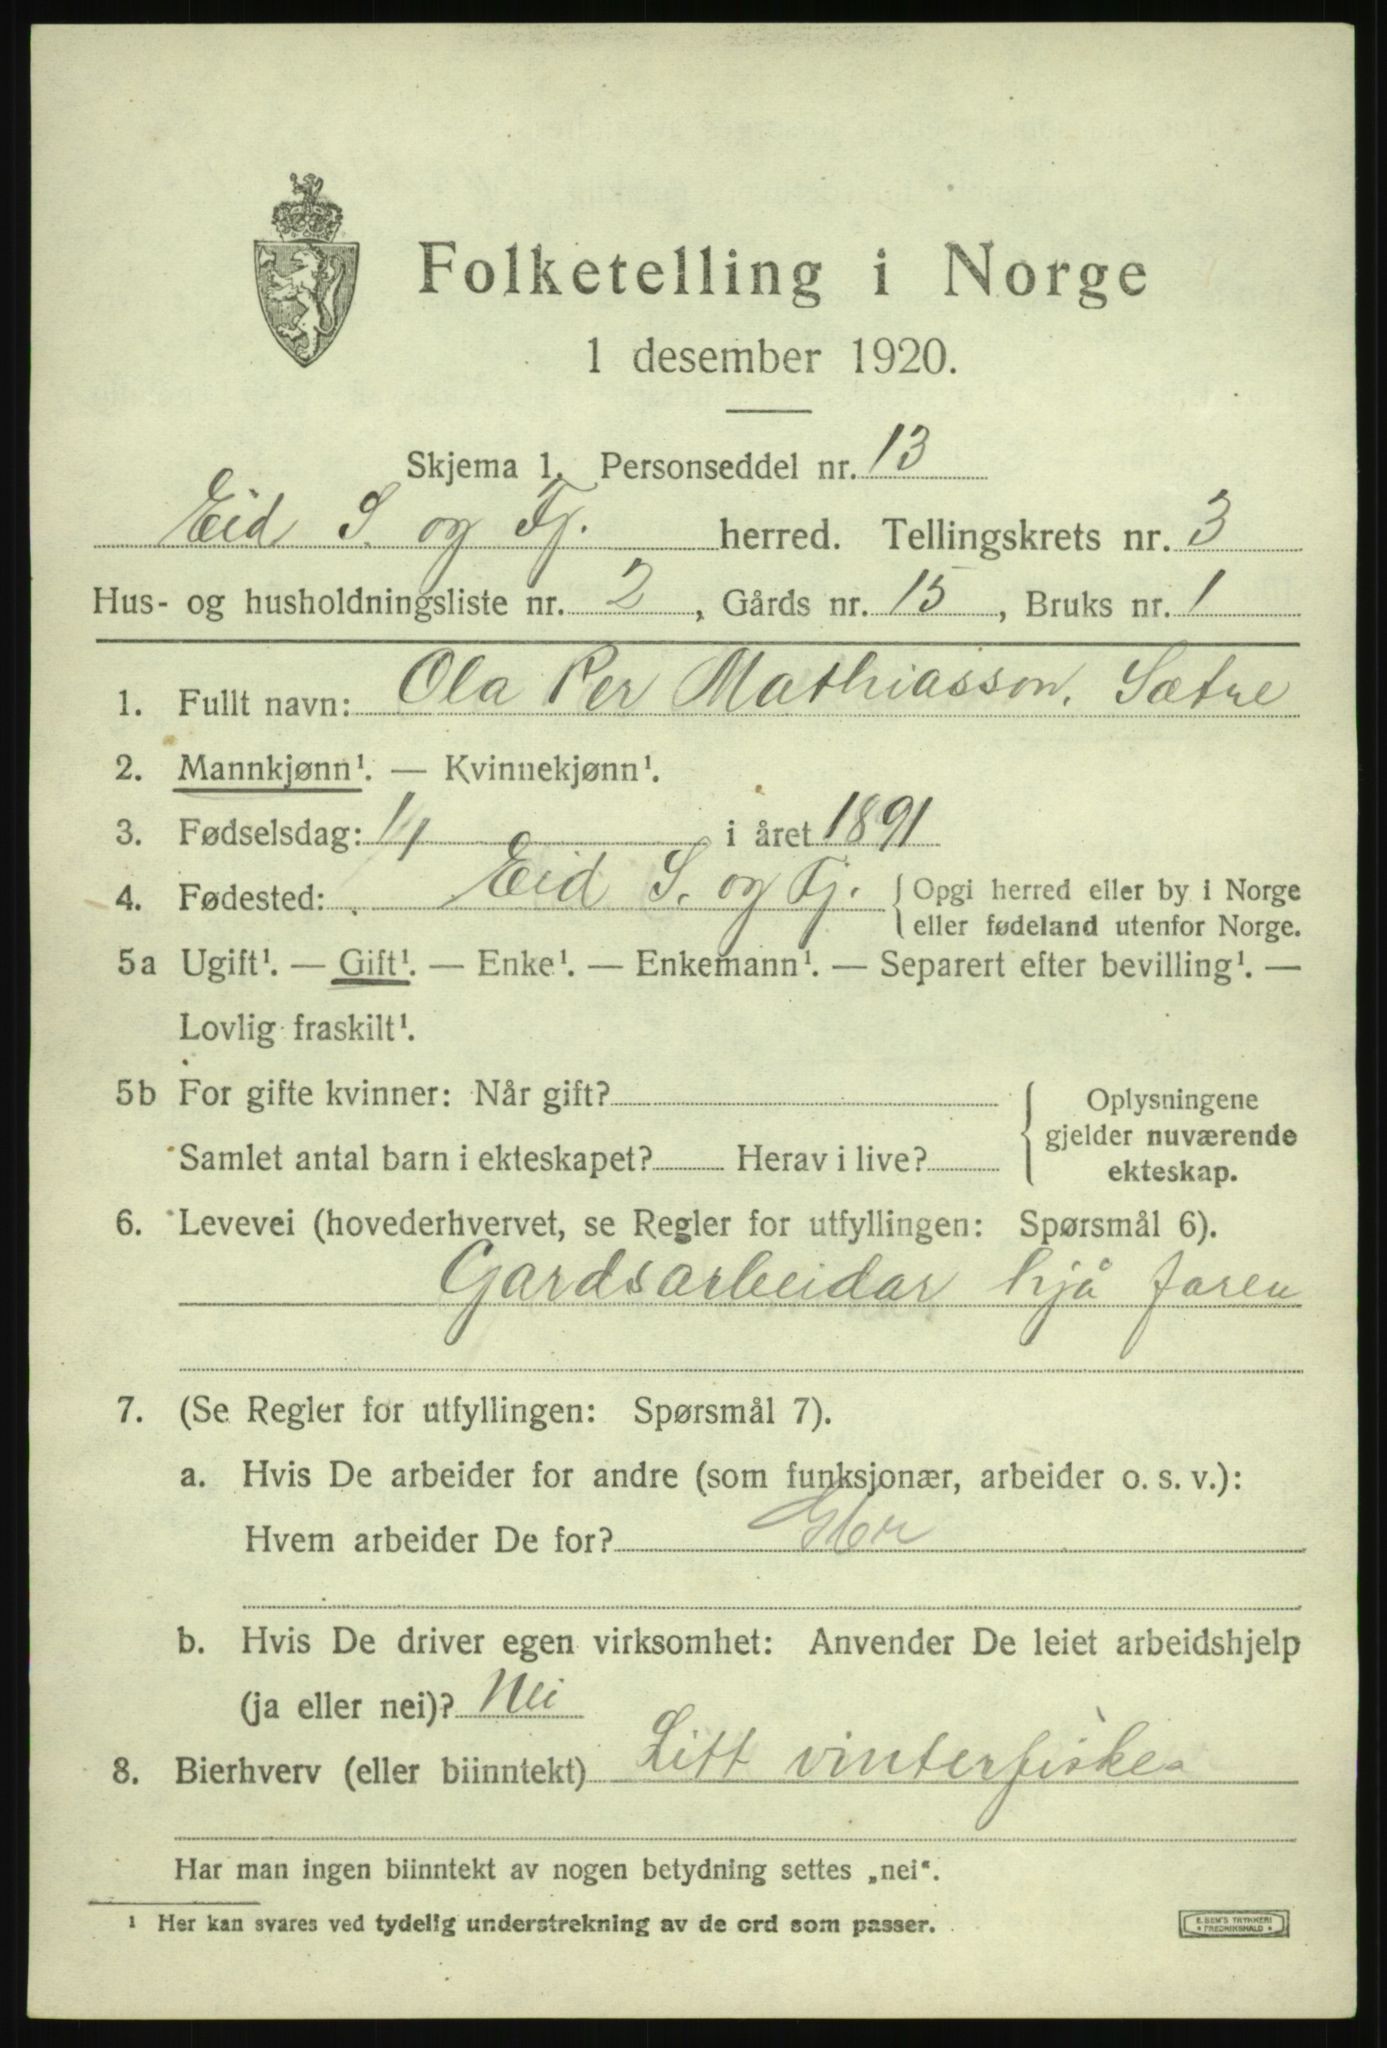 Folketelling i Norge
1 desember 1920.
Skjema 1. Personseddel nr. 13
Eid S. og Fj. herred. Tellingskrets nr. 3
Hus- og husholdningsliste nr. 2, Gårds nr. 15, Bruks nr. 1
1. Fullt navn: Ola Per Mathiasson. Sætre
2. Mannkjønn¹. — Kvinnekjønn¹.
3. Fødselsdag: i året 1891
4. Fødested: Eid S. og Fj. { Opgi herred eller by i Norge
eller fødeland utenfor Norge.
5a Ugift¹. — Gift¹. — Enke¹. — Enkemann¹. — Separert efter bevilling¹. —
Lovlig fraskilt¹.
5b For gifte kvinner: Når gift?
Samlet antal barn i ekteskapet? Herav i live?
{ Oplysningene
gjelder nuværende
ekteskap.
6. Levevei (hovederhvervet, se Regler for utfyllingen: Spørsmål 6).
Gardsarbeidar hjå faren
7. (Se Regler for utfyllingen: Spørsmål 7).
a. Hvis De arbeider for andre (som funksjonær, arbeider o. s. v.):
Hvem arbeider De for?
b. Hvis De driver egen virksomhet: Anvender De leiet arbeidshjelp
(ja eller nei)? Nei
8. Bierhverv (eller biinntekt) Litt vinterfiske
Har man ingen biinntekt av nogen betydning settes „nei“.
¹ Her kan svares ved tydelig understrekning av de ord som passer.
E. SEM'S TRYKKERI
FREDRIKSHALD